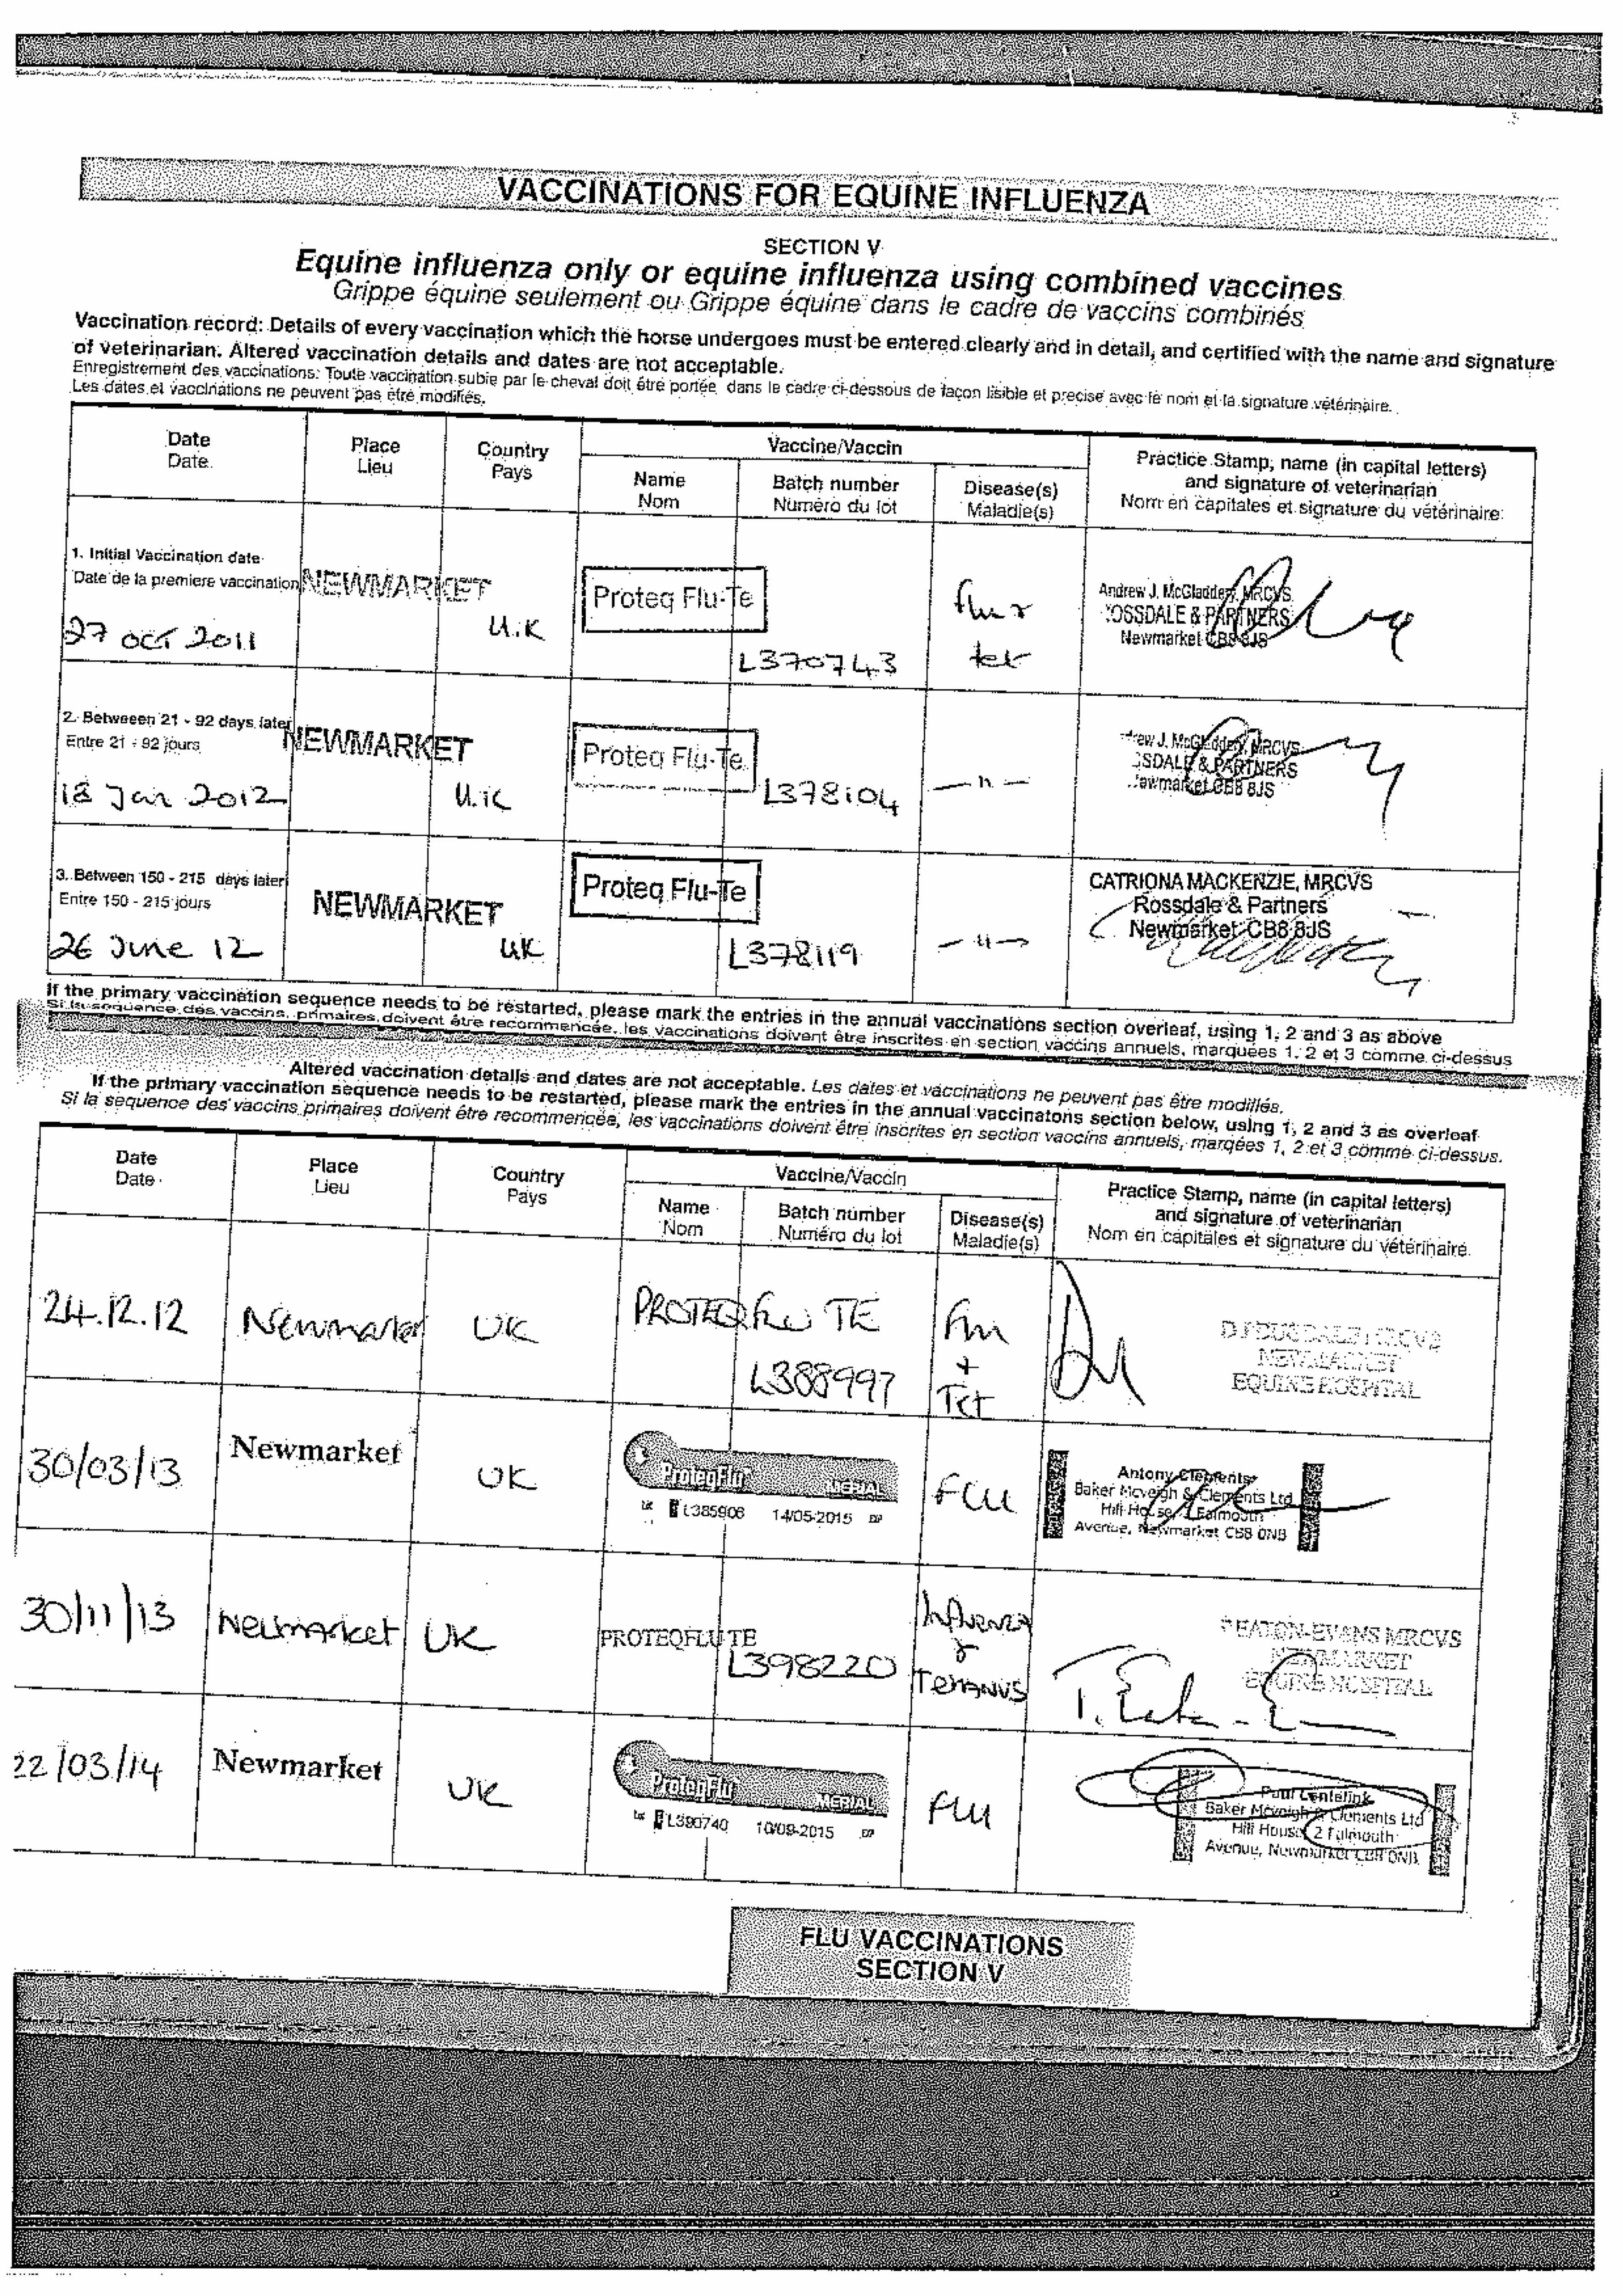 VACCINATIONS FOR EQUINE INFLUENZA
SECTION V
Equine influenza only or equine influenza using combined vaccines
Grippe équine seulement ou Grippe équine dans le cadre de vaccins combinés
Vaccination record: Details of every vaccination which the horse undergoes must be entered clearly and in detail, and certified with the name and signature
of veterinarian. Altered vaccination details and dates are not acceptable.
Enregistrement des vaccinations: Toute vaccination subie par le cheval doit être portée dans le cadre ci-dessous de façon lisible et precise avec le nom et la signature vétérinaire.
Les dates et vaccinations ne peuvent pas être modifiés.
Date Place Country Vaccine/Vaccin Practice Stamp, name (in capital letters)
Date Lieu Pays and signature of veterinarian
Name Batch number Disease(s) Nom en capitales et signature du vétérinaire
Nom Numéro du lot Maladie(s)
1. Initial Vaccination date
Date de la premiere vaccination NEWMARKET Proteq Flu-Te Andrew J. McGladdery, MRCVS
ROSSDALE & PARTNERS
Newmarket CB8 8JS
27 OCT 2011 U.K L370743 flu & tet
2. Betweeen 21 - 92 days later
Entre 21 - 92 jours NEWMARKET Proteq Flu-Te J. McGladdery, MRCVS
& PARTNERS
CB8 8JS
18 Jan 2012 U.K L378104 — 11 —
3. Between 150 - 215 days later
Entre 150 - 215 jours NEWMARKET Proteq Flu-Te CATRIONA MACKENZIE, MRCVS
Rossdale & Partners
Newmarket CB8 8JS
26 June 12 UK L378119 — 11 —
If the primary vaccination sequence needs to be restarted, please mark the entries in the annual vaccinations section overleaf, using 1, 2 and 3 as above
Si la sequence des vaccins primaires doivent être recommencée, les vaccinations doivent être inscrites en section vaccins annuels, marquées 1, 2 et 3 comme ci-dessus
Altered vaccination details and dates are not acceptable. Les dates et vaccinations ne peuvent pas être modifiés.
If the primary vaccination sequence needs to be restarted, please mark the entries in the annual vaccinatons section below, using 1, 2 and 3 as overleaf
Si la sequence des vaccins primaires doivent être recommencée, les vaccinations doivent être inscrites en section vaccins annuels, marqées 1, 2 et 3 comme ci-dessus.
Date Place Country Vaccine/Vaccin Practice Stamp, name (in capital letters)
Date Lieu Pays and signature of veterinarian
Name Batch number Disease(s) Nom en capitales et signature du vétérinaire
Nom Numéro du lot Maladie(s)
24.12.12 Newmarket UK PROTEQ FLU TE Flu
L388997 + Tet
MRCVS
NEWMARKET
EQUINE HOSPITAL
30/03/13 Newmarket UK ProteqFlu MERIAL FLU
L385906 14/05-2015
Antony Clements
Baker Mcveigh & Clements Ltd
Hill House, 2 Falmouth
Avenue, Newmarket CB8 0NB
30/11/13 Newmarket UK PROTEQFLU TE Influenza
L398220 & Tetanus
EATON-EVANS MRCVS
NEWMARKET
EQUINE HOSPITAL
22/03/14 Newmarket UK ProteqFlu MERIAL FLU
L390740 10/09-2015
Paul
Baker Mcveigh & Clements Ltd
Hill House, 2 Falmouth
Avenue, Newmarket CB8 0NB
FLU VACCINATIONS
SECTION V